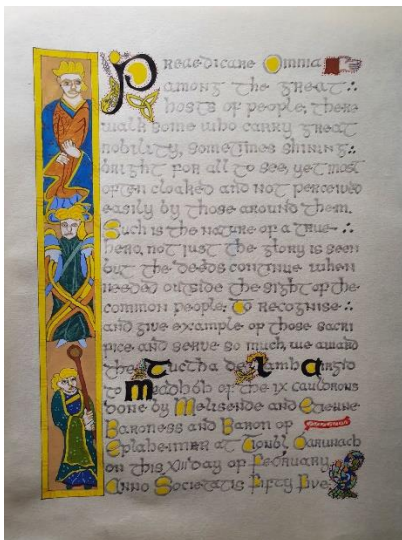 Praedicare Omnia
among the great
hosts of people, there
walk some who carry great
nobility, sometimes shining
bright for all to see, yet most
often cloaked and not perceived
easily by those around them.
Such is the nature of a true
hero, not just the glory is seen
but the deeds continue when
needed outside the sight of the
common people. To recognise
and give example of those sacri
fice and serve so much, we award
the Lamh
to of the ix cauldrons
done by Melisende and Etienne
Baroness and Baron of
at
on this day of February
Anno Societatis Fifty Five